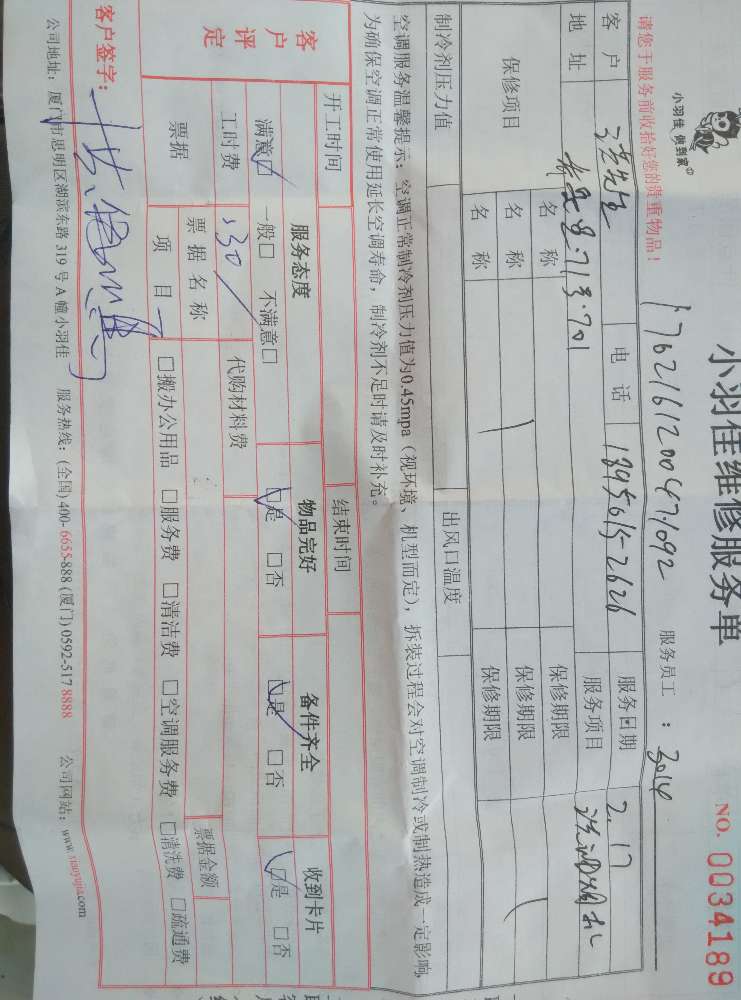 小羽佳 俱到家
小羽佳维修服务单
NO. 0034189
请您于服务前收拾好您的贵重物品!
服务员工 : 3014
客户 洪先生 电话 服务日期 2.17
地址 71号701 服务项目 洗油烟机
保修项目 名称 保修期限
名称 保修期限
名称 保修期限
制冷剂压力值 出风口温度
空调服务温馨提示:空调正常制冷剂压力值为0.45mpa(视环境、机型而定),拆装过程会对空调制冷或制热造成一定影响,
为确保空调正常使用延长空调寿命,制冷剂不足时请及时补充。
开工时间 结束时间
客户评定 服务态度 物品完好 备件齐全 收到卡片
满意☑ 一般□ 不满意□ ☑是 □否 ☑是 □否 ☑是 □否
工时费 130 代购材料费
票据 票据名称 票据金额
项目 □搬办公用品 □服务费 □清洁费 □空调服务费 □清洗费 □疏通费
客户签字:
公司地址:厦门市思明区湖滨东路 319 号 A 幢小羽佳 服务热线:(全国) 400-6655-888 (厦门) 0592-517 8888 公司网站:www.xiaoyujia.com